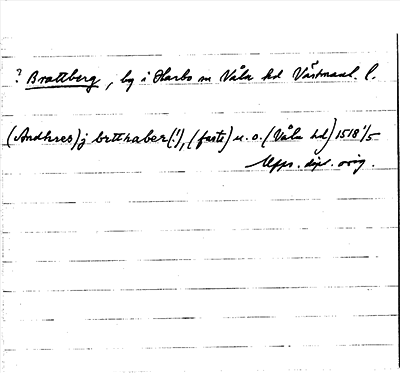 ? Brattberg, by i Harbo sn Våla hd Västmanl. l.
(Andhres) j brtthaber (!), (faste) u. o. (Våla hd) 1518 1/5
Upps. dipl. orig.